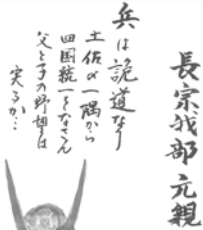 長宗我部元親
兵は詭道なり
土佐の一隅から
四国統一をなさん
父と子の野望は
実るか…